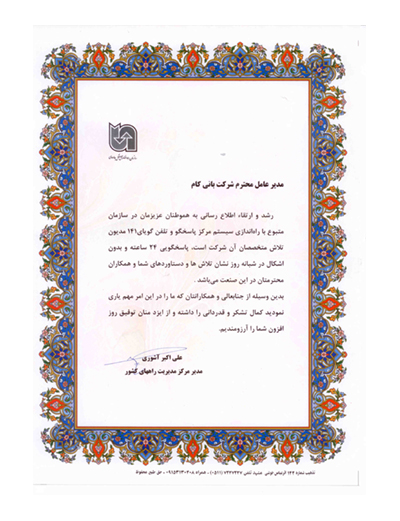 مدیر عامل محترم شرکت یانی کام
رشد و ارتقاء اطلاع رسانی به هموطنان عزیزمان در سازمان
متبوع با راه‌اندازی سیستم مرکز پاسخگو و تلفن گویای۱۴۱ مدیون
تلاش متخصصان آن شرکت است، پاسخگویی ۲۴ ساعته و بدون
اشکال در شبانه روز نشان تلاش ها و دستاوردهای شما و همکاران
محترمتان در این صنعت می‌باشد.
بدین وسیله از جنابعالی و همکارانتان که ما را در این امر مهم یاری
نمودید کمال تشکر و قدردانی را داشته و از ایزد منان توفیق روز
افزون شما را آرزومندیم.
علی اکبر آشوری
مدیر مرکز مدیریت راههای کشور